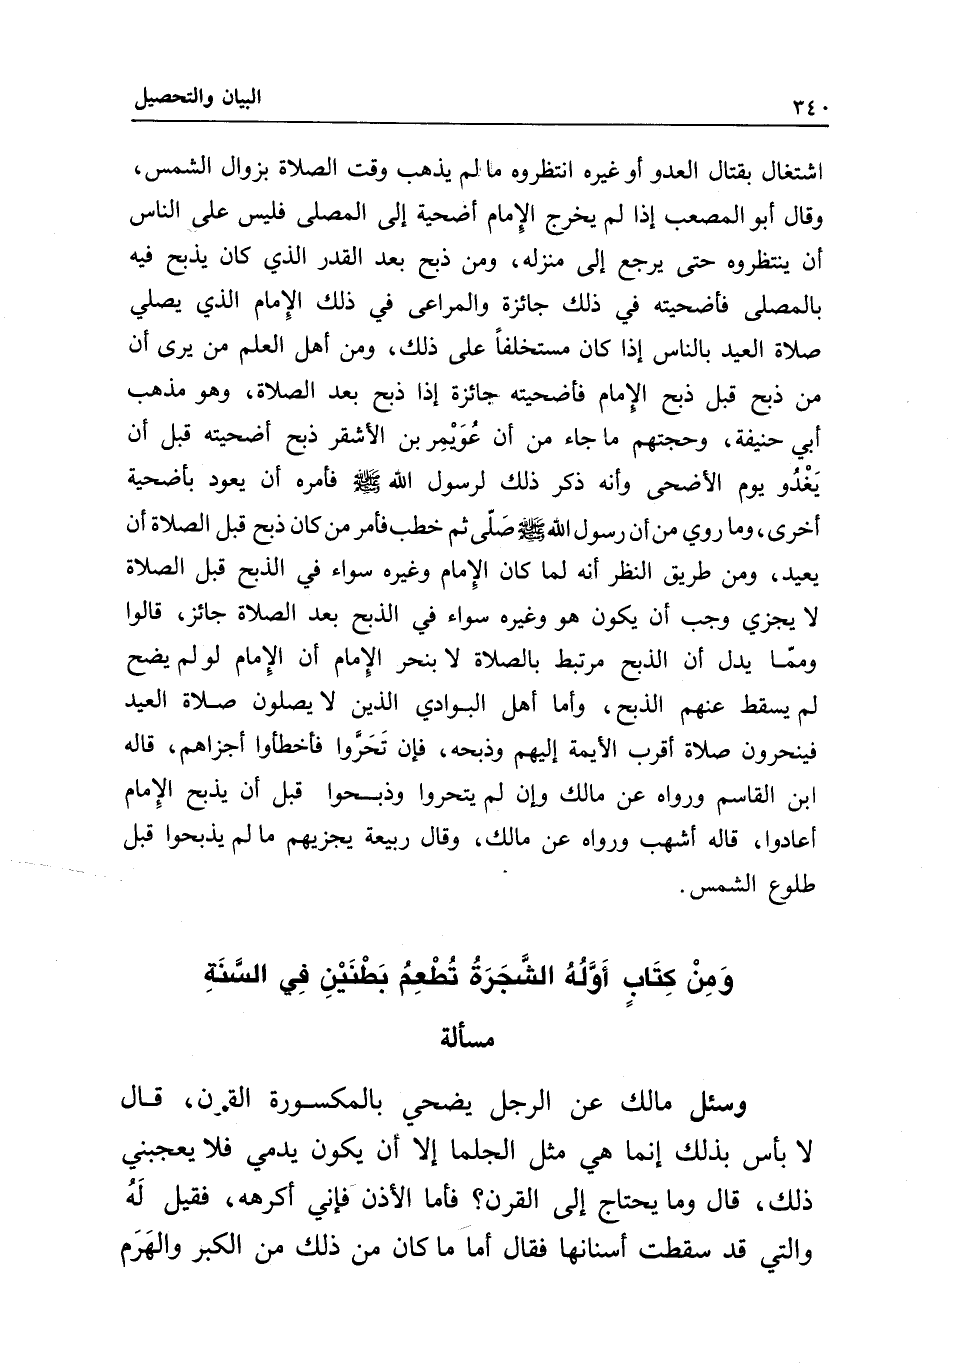 ٣٤٠ البيان والتحصيل
اشتغال بقتال العدو أو غيره انتظروه ما لم يذهب وقت الصلاة بزوال الشمس،
وقال أبو المصعب إذا لم يخرج الإمام أضحية إلى المصلى فليس على الناس
أن ينتظروه حتى يرجع إلى منزله، ومن ذبح بعد القدر الذي كان يذبح فيه
بالمصلى فأضحيته في ذلك جائزة والمراعى في ذلك الإمام الذي يصلي
صلاة العيد بالناس إذا كان مستخلفاً على ذلك، ومن أهل العلم من يرى أن
من ذبح قبل ذبح الإمام فأضحيته جائزة إذا ذبح بعد الصلاة، وهو مذهب
أبي حنيفة، وحجتهم ما جاء من أن عُوَيْمِر بن الأشقر ذبح أضحيته قبل أن
يَغْدُو يوم الأضحى وأنه ذكر ذلك لرسول الله ﷺ فأمره أن يعود بأضحية
أخرى، وما روي من أن رسول الله ﷺ صَلَّى ثم خطب فأمر من كان ذبح قبل الصلاة أن
يعيد، ومن طريق النظر أنه لما كان الإمام وغيره سواء في الذبح قبل الصلاة
لا يجزي وجب أن يكون هو وغيره سواء في الذبح بعد الصلاة جائز، قالوا
وممّا يدل أن الذبح مرتبط بالصلاة لا بنحر الإمام أن الإمام لو لم يضح
لم يسقط عنهم الذبح، وأما أهل البوادي الذين لا يصلون صلاة العيد
فينحرون صلاة أقرب الأيمة إليهم وذبحه، فإن تَحَرَّوا فأخطأوا أجزاهم، قاله
ابن القاسم ورواه عن مالك وإن لم يتحروا وذبحوا قبل أن يذبح الإمام
أعادوا، قاله أشهب ورواه عن مالك، وقال ربيعة يجزيهم ما لم يذبحوا قبل
طلوع الشمس.
وَمِنْ كِتَابٍ أَوَّلُهُ الشَّجَرَةُ تُطْعِمُ بَطْنَيْنِ فِي السَّنَةِ
مسألة
وسئل مالك عن الرجل يضحي بالمكسورة القرن، قال
لا بأس بذلك إنما هي مثل الجلما إلا أن يكون يدمي فلا يعجبني
ذلك، قال وما يحتاج إلى القرن؟ فأما الأذن فإني أكرهه، فقيل لَهُ
والتي قد سقطت أسنانها فقال أما ما كان من ذلك من الكبر والهَرَم